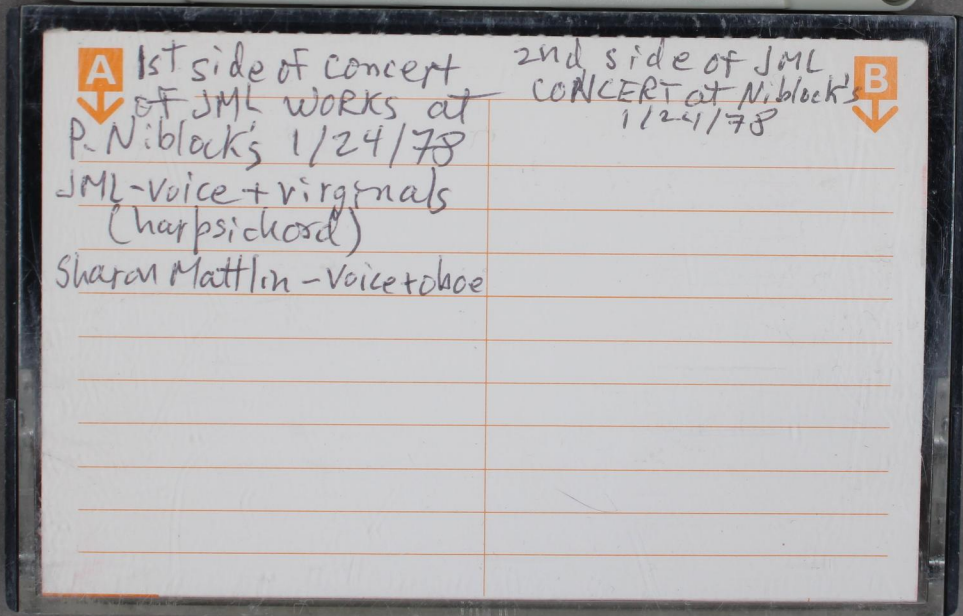 A
1st side of concert
of JML WORKS at
P. Niblock's 1/24/78
JML-Voice + virginals
(harpsichord)
Sharon Mattlin - Voice + oboe
B
2nd side of JML
CONCERT at Niblock's
1/24/78